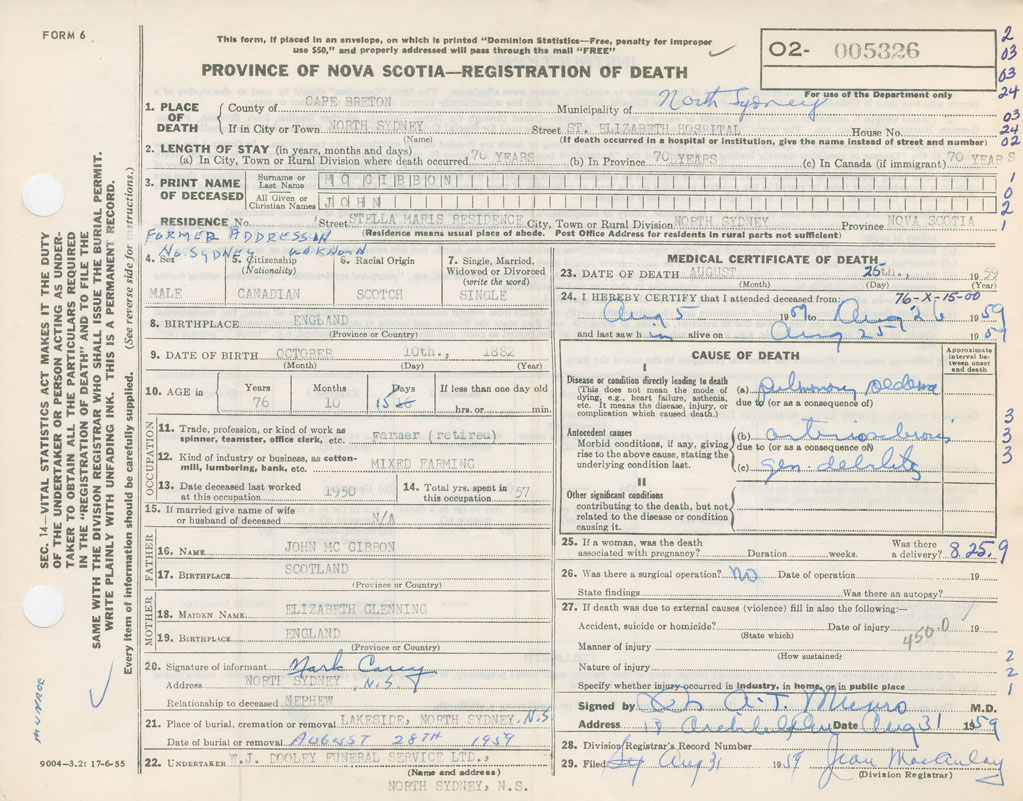 FORM 6
This form, if placed in an envelope, on which is printed "Dominion Statistics—Free, penalty for improper
use $50," and properly addressed will pass through the mail "FREE"
O2- 005326
PROVINCE OF NOVA SCOTIA—REGISTRATION OF DEATH
For use of the Department only
2
03
03
24
03
24
02
1
0
2
1
1. PLACE OF DEATH
County of CAPE BRETON Municipality of North Sydney
If in City or Town NORTH SYDNEY Street ST. ELIZABETH HOSPITAL House No.
(Name) (If death occurred in a hospital or institution, give the name instead of street and number)
2. LENGTH OF STAY (in years, months and days)
(a) In City, Town or Rural Division where death occurred 70 YEARS (b) In Province 70 YEARS (c) In Canada (if immigrant) 70 YEARS
3. PRINT NAME OF DECEASED
Surname or Last Name MC GIBBON
All Given or Christian Names JOHN
RESIDENCE No. Street STELLA MARIS RESIDENCE City, Town or Rural Division NORTH SYDNEY Province NOVA SCOTIA
(Residence means usual place of abode. Post Office Address for residents in rural parts not sufficient)
FORMER ADDRESS IN
No. SYDNEY UNKNOWN
4. Sex 5. Citizenship (Nationality) 6. Racial Origin 7. Single, Married, Widowed or Divorced (write the word)
MALE CANADIAN SCOTCH SINGLE
8. BIRTHPLACE ENGLAND
(Province or Country)
9. DATE OF BIRTH OCTOBER 10th., 1882
(Month) (Day) (Year)
10. AGE in Years Months Days If less than one day old
76 10 15 hrs. or min.
OCCUPATION
11. Trade, profession, or kind of work as spinner, teamster, office clerk, etc. Farmer (retired)
12. Kind of industry or business, as cotton-mill, lumbering, bank, etc. MIXED FARMING
13. Date deceased last worked at this occupation 1950
14. Total yrs. spent in this occupation 57
15. If married give name of wife or husband of deceased N/A
FATHER
16. NAME JOHN MC GIBBON
17. BIRTHPLACE SCOTLAND
(Province or Country)
MOTHER
18. MAIDEN NAME ELIZABETH GLENNING
19. BIRTHPLACE ENGLAND
(Province or Country)
20. Signature of informant Mark Carey
Address NORTH SYDNEY, N.S.
Relationship to deceased NEPHEW
21. Place of burial, cremation or removal LAKESIDE, NORTH SYDNEY. N.S
Date of burial or removal AUGUST 28TH 1959
22. UNDERTAKER W.J. DOOLEY FUNERAL SERVICE LTD.,
(Name and address)
NORTH SYDNEY, N.S.
MEDICAL CERTIFICATE OF DEATH
23. DATE OF DEATH AUGUST 25th., 1959
(Month) (Day) (Year)
76-X-15-00
24. I HEREBY CERTIFY that I attended deceased from:
Aug 5 1959 to Aug 26 1959
and last saw him alive on Aug 25 1959
CAUSE OF DEATH
Approximate interval between onset and death
I
Disease or condition directly leading to death
(This does not mean the mode of dying, e.g., heart failure, asthenia, etc. It means the disease, injury, or complication which caused death.)
(a) pulmonary oedema
due to (or as a consequence of)
Antecedent causes
Morbid conditions, if any, giving rise to the above cause, stating the underlying condition last.
(b) arteriosclerosis
due to (or as a consequence of)
(c) gen. debility
3
3
3
3
II
Other significant conditions
contributing to the death, but not related to the disease or condition causing it.
25. If a woman, was the death associated with pregnancy? Duration weeks. Was there a delivery? 8.25.9
26. Was there a surgical operation? No Date of operation 19
State findings Was there an autopsy?
27. If death was due to external causes (violence) fill in also the following:—
Accident, suicide or homicide? Date of injury 19
(State which)
450.0
Manner of injury
(How sustained)
Nature of injury
Specify whether injury occurred in industry, in home, or in public place
2
2
1
Signed by A. T. Munro M.D.
Address Date Aug 31 1959
28. Division Registrar's Record Number
29. Filed Aug 31 1959 Jean MacAulay
(Division Registrar)
SEC. 14—VITAL STATISTICS ACT MAKES IT THE DUTY
OF THE UNDERTAKER OR PERSON ACTING AS UNDER-
TAKER TO OBTAIN ALL THE PARTICULARS REQUIRED
IN THE "REGISTRATION OF DEATH" AND TO FILE THE
SAME WITH THE DIVISION REGISTRAR WHO SHALL ISSUE THE BURIAL PERMIT.
WRITE PLAINLY WITH UNFADING INK. THIS IS A PERMANENT RECORD.
Every item of information should be carefully supplied. (See reverse side for instructions.)
MUNROE
9004—3.2: 17-6-55